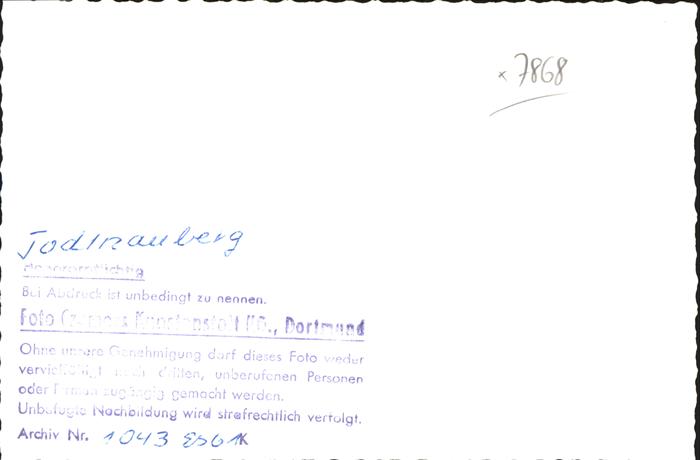 x 7868
Todtnauberg
honorarpflichtig
Bei Abdruck ist unbedingt zu nennen.
Foto Kunstanstalt KG., Dortmund
Ohne unsere Genehmigung darf dieses Foto weder
vervielfältigt noch dritten, unberufenen Personen
oder Firmen zugängig gemacht werden.
Unbefugte Nachbildung wird strafrechtlich verfolgt.
Archiv Nr. 1043